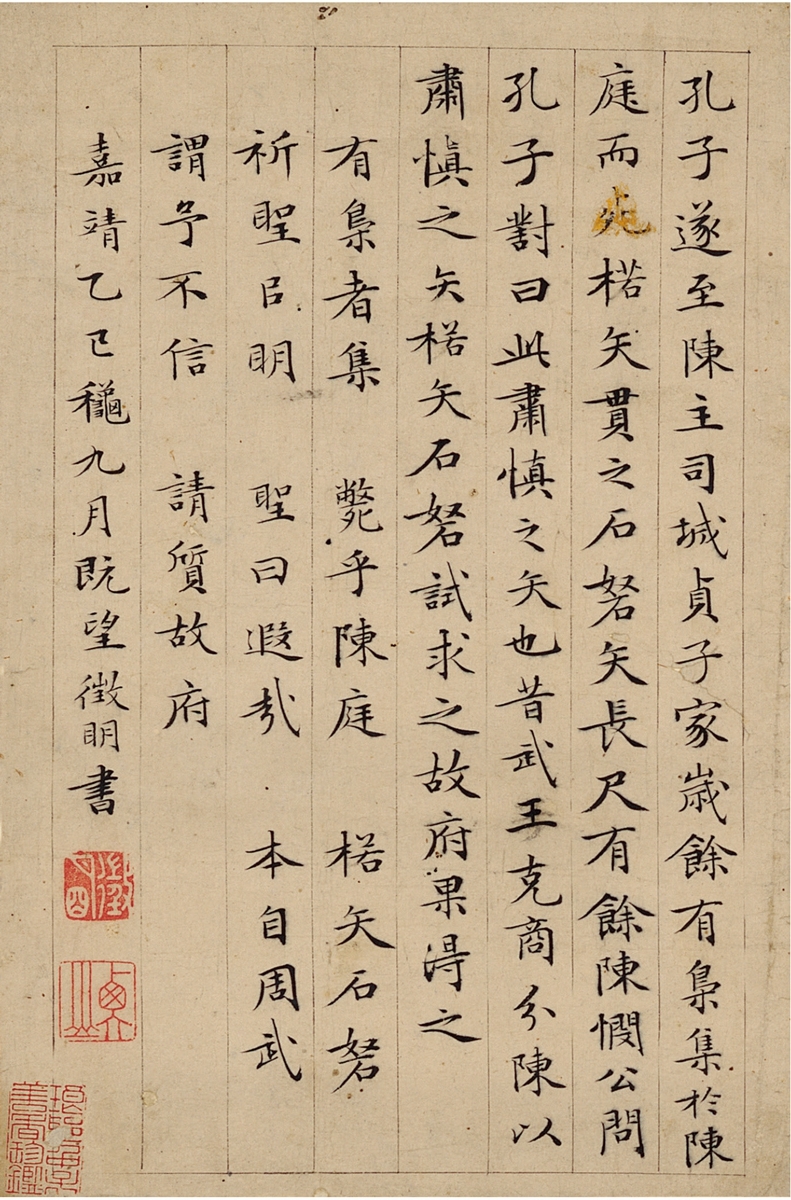 孔子遂至陳主司城貞子家歲餘有梟集於陳
庭而死楛矢貫之石砮矢長尺有餘陳憫公問
孔子對曰此肅慎之矢也昔武王克商分陳以
肅慎之矢楛矢石砮試求之故府果得之
有梟者集　斃乎陳庭　楛矢石砮
祈聖㠯明　聖曰遐哉　本自周武
謂予不信　請質故府
嘉靖乙巳龝九月既望徵明書